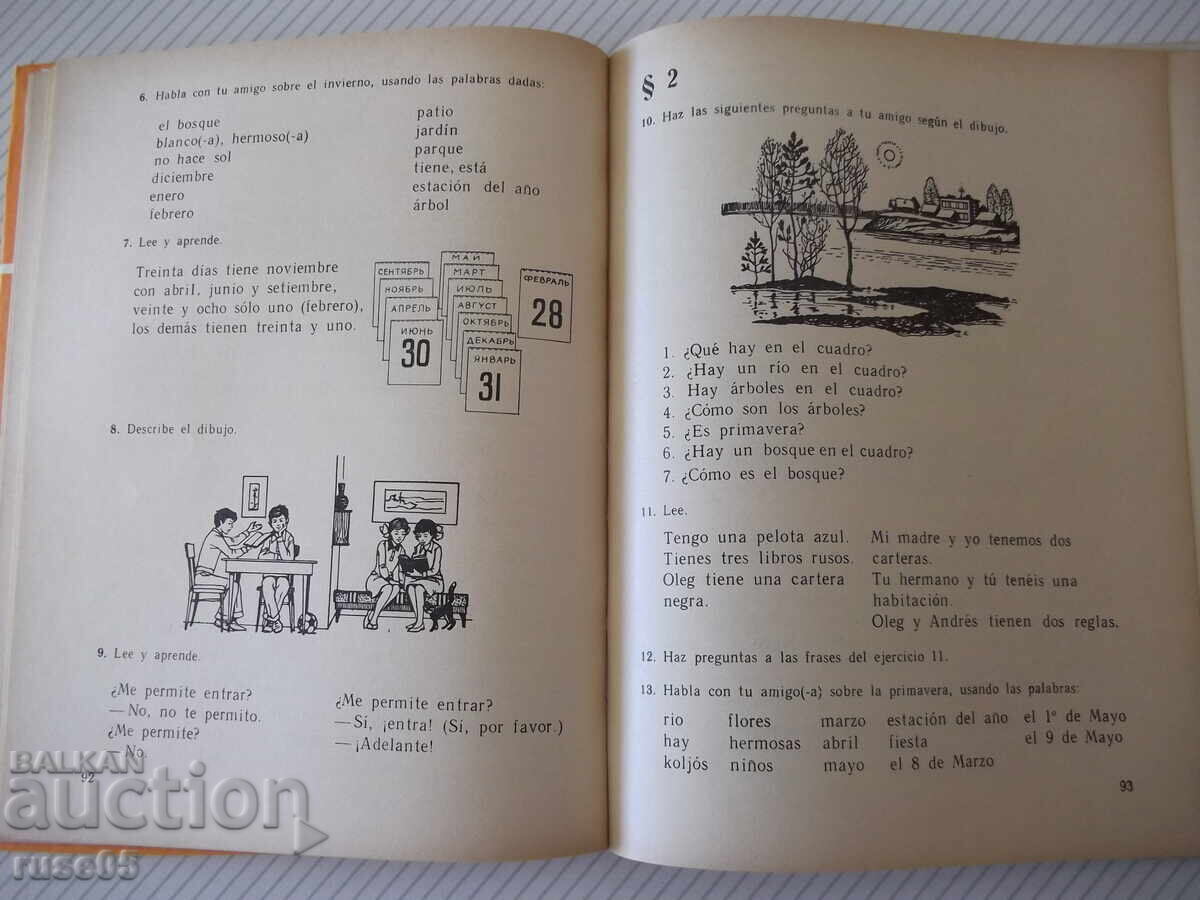 6. Habla con tu amigo sobre el invierno, usando las palabras dadas:
el bosque
blanco(-a), hermoso(-a)
no hace sol
diciembre
enero
febrero
patio
jardín
parque
tiene, está
estación del año
árbol
7. Lee y aprende.
Treinta días tiene noviembre
con abril, junio y setiembre,
veinte y ocho sólo uno (febrero),
los demás tienen treinta y uno.
СЕНТЯБРЬ
НОЯБРЬ
АПРЕЛЬ
ИЮНЬ
30
МАЙ
МАРТ
ИЮЛЬ
АВГУСТ
ОКТЯБРЬ
ДЕКАБРЬ
ЯНВАРЬ
31
ФЕВРАЛЬ
28
8. Describe el dibujo.
9. Lee y aprende.
¿Me permite entrar?
— No, no te permito.
¿Me permite?
— No.
¿Me permite entrar?
— Sí, ¡entra! (Sí, por favor.)
— ¡Adelante!
92
§ 2
10. Haz las siguientes preguntas a tu amigo según el dibujo.
1. ¿Qué hay en el cuadro?
2. ¿Hay un río en el cuadro?
3. Hay árboles en el cuadro?
4. ¿Cómo son los árboles?
5. ¿Es primavera?
6. ¿Hay un bosque en el cuadro?
7. ¿Cómo es el bosque?
11. Lee.
Tengo una pelota azul.
Tienes tres libros rusos.
Oleg tiene una cartera
negra.
Mi madre y yo tenemos dos
carteras.
Tu hermano y tú tenéis una
habitación.
Oleg y Andrés tienen dos reglas.
12. Haz preguntas a las frases del ejercicio 11.
13. Habla con tu amigo(-a) sobre la primavera, usando las palabras:
rio flores marzo estación del año el 1º de Mayo
hay hermosas abril fiesta el 9 de Mayo
koljós niños mayo el 8 de Marzo
93
BALKAN
auction
ruse05